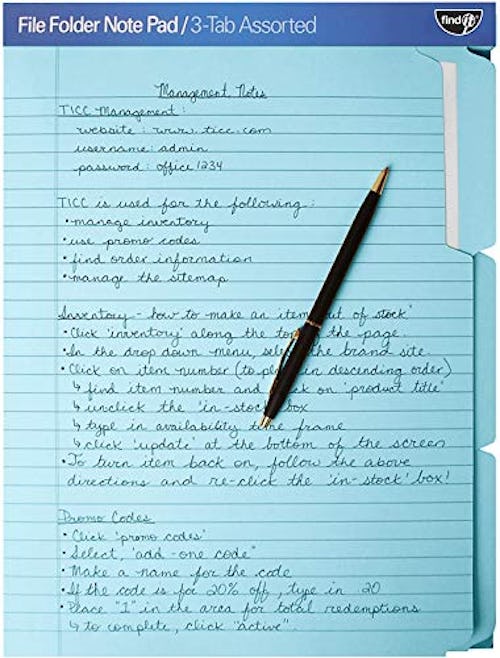 File Folder Note Pad / 3-Tab Assorted
find it
Management Notes
TICC Management:
website : www.ticc.com
username: admin
password: office 1234
TICC is used for the following:
• manage inventory
• use promo codes
• find order information
• manage the sitemap
Inventory - how to make an item out of stock'
• Click 'inventory' along the top of the page.
• In the drop down menu, select the brand site.
• Click on item number (to place in descending order)
↳ find item number and click on 'product title'
↳ unclick the 'in-stock' box
↳ type in availability time frame
↳ click 'update' at the bottom of the screen
• To turn item back on, follow the above
directions and re-click the 'in-stock' box!
Promo Codes
• Click 'promo codes'
• Select, 'add -one code"
• Make a name for the code
• If the code is for 20% off, type in .20
• Place "1" in the area for total redemptions
↳ to complete, click "active".